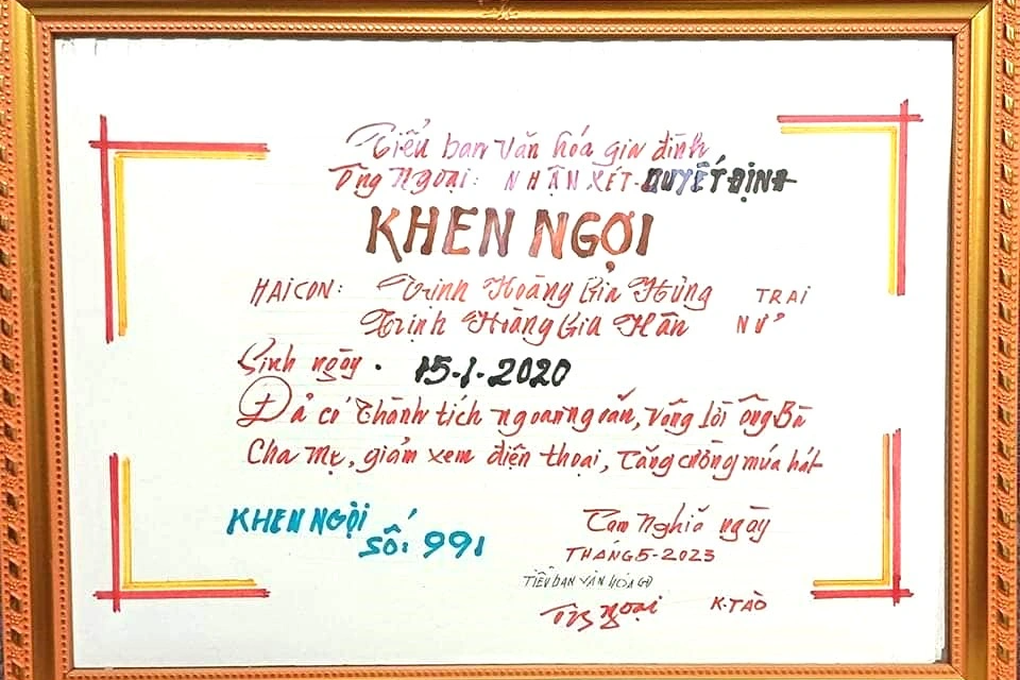 Tiểu ban Văn hóa gia đình
Ông Ngoại: NHẬN XÉT - QUYẾT ĐỊNH
KHEN NGỢI
HAI CON: Trịnh Hoàng Gia Hưng TRAI
Trịnh Hoàng Gia Hân NỮ
Sinh ngày. 15-1-2020
Đả có Thành tích ngoan ngoản, vâng lời ông Bà
Cha mẹ, giảm xem điện thoại, Tăng cường múa hát
KHEN NGỢI
SỐ: 991
Tam Nghĩa ngày
THÁNG 5-2023
TIỂU BAN VĂN HÓA GĐ
Ông ngoại K.TÀO